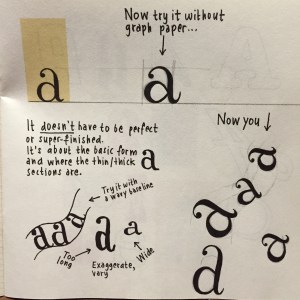 Now try it without
graph paper...
a
a
It doesn't have to be perfect
or super-finished.
It's about the basic form
and where the thin/thick
sections are.
a
Try it with
a wavy baseline
aaa
Too
long
a
a
Exaggerate,
vary
Wide
Now you
a
a
a
a
a